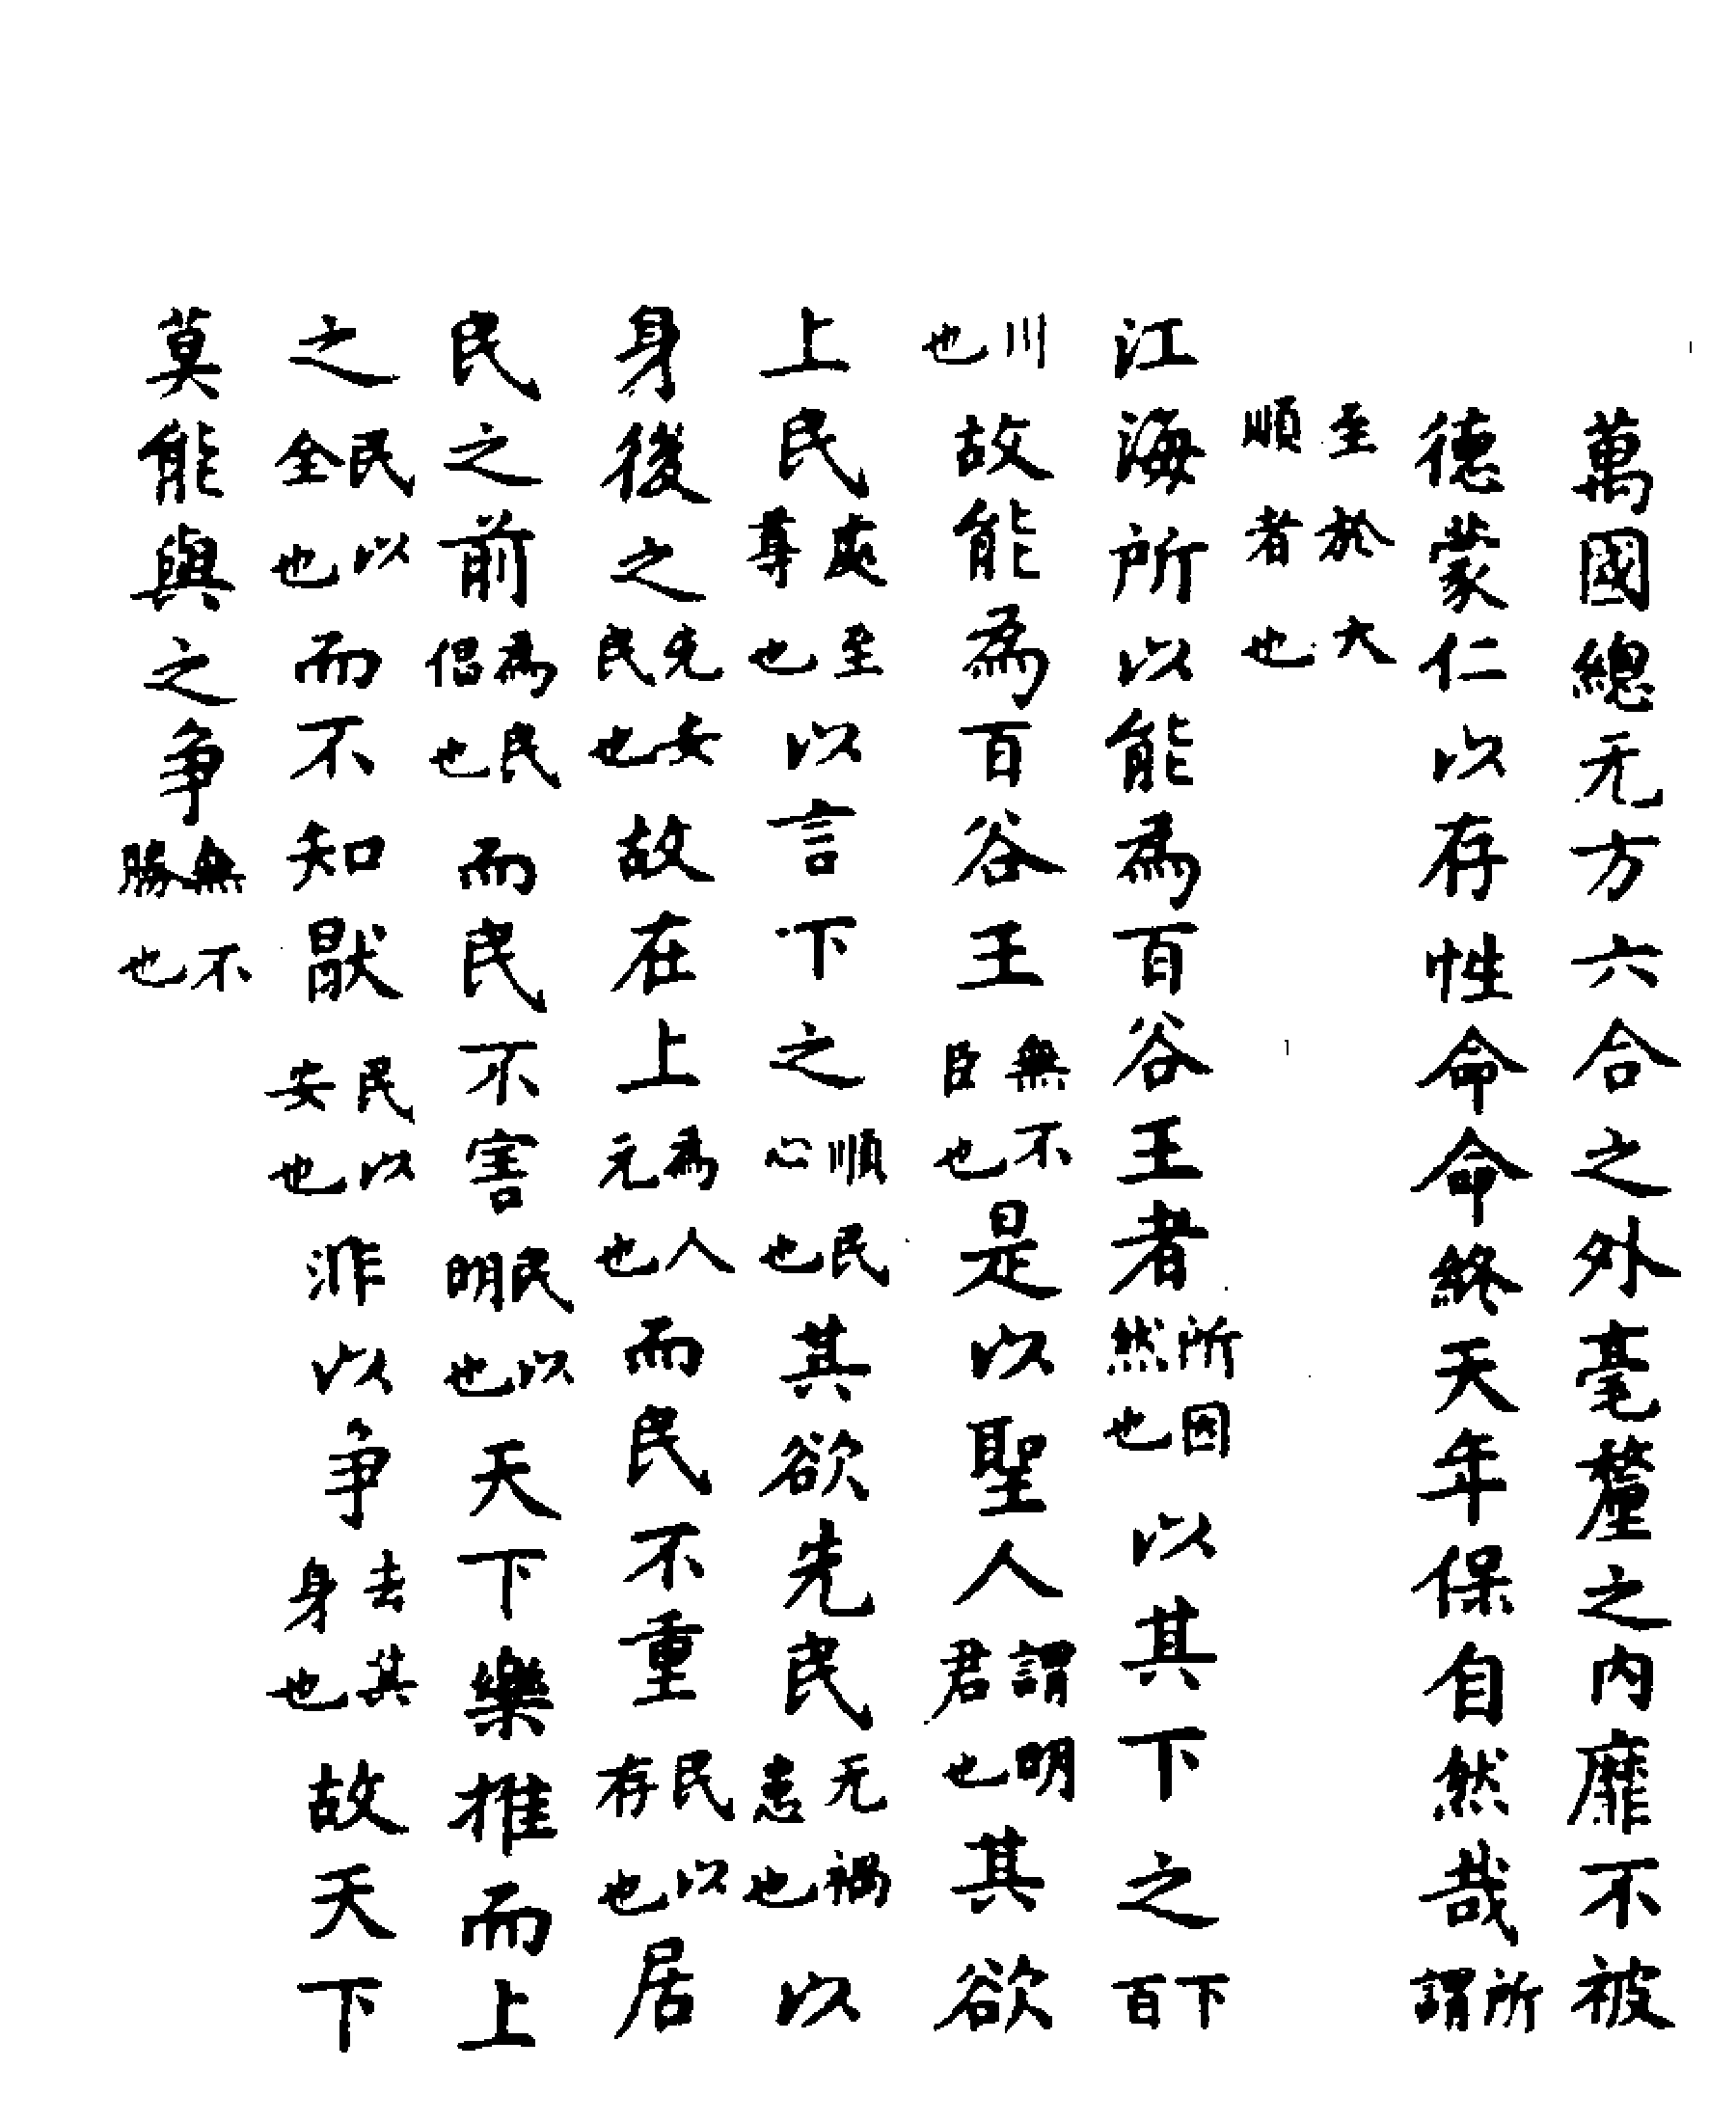 萬國總无方六合之外毫釐之内靡不被
德蒙仁以存性命命終天年保自然哉所謂
至於大順者也
江海所以能為百谷王者所因然也以其下之下百
川也故能為百谷王無不臣也是以聖人謂明君也其欲
上民處至尊也以言下之順民心也其欲先民无禍患也以
身後之先安民也故在上為人元也而民不重民以存也居
民之前為民倡也而民不害民以明也天下樂推而上
之民以全也而不知猒民以安也非以争去其身也故天下
莫能與之争無不勝也